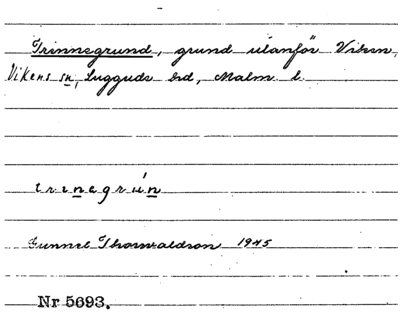 Trinnegrund, grund utanför Viken,
Vikens sn, Luggude hd, Malm. l.
trinegrún
Gunnel Thorwaldson 1945
Nr 5693.